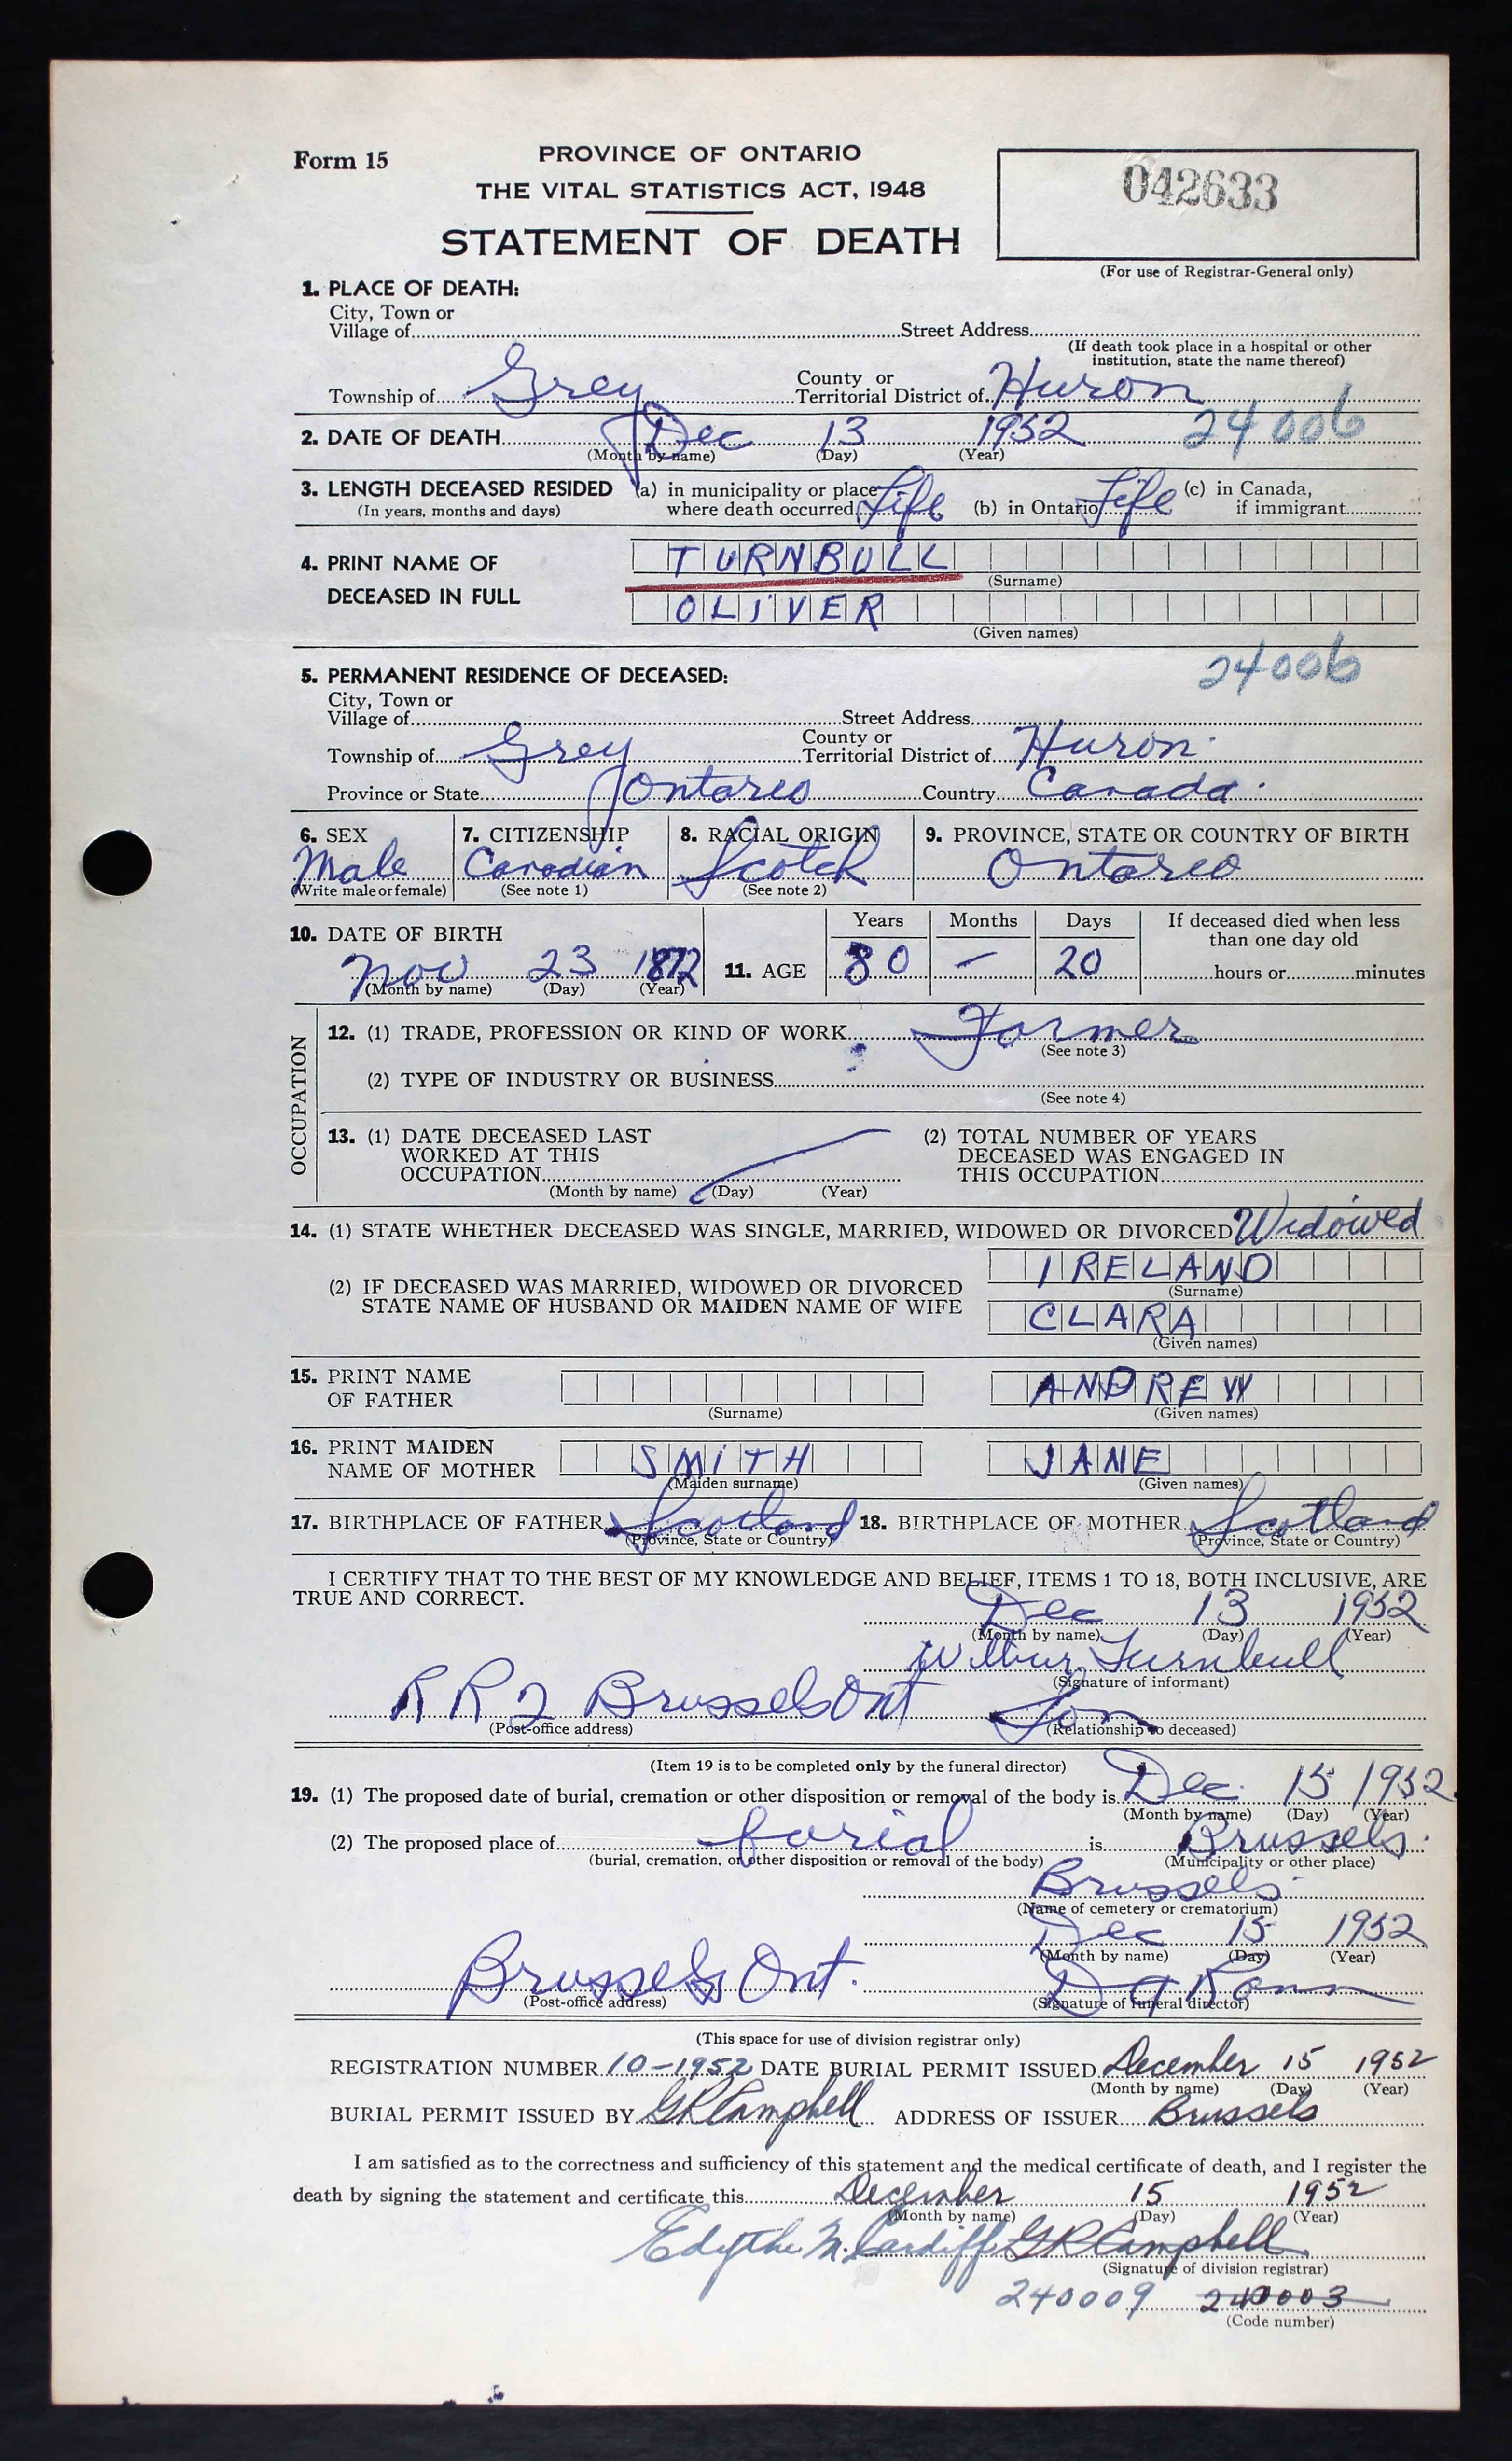 Form 15
PROVINCE OF ONTARIO
THE VITAL STATISTICS ACT, 1948
STATEMENT OF DEATH
042633
(For use of Registrar-General only)
1. PLACE OF DEATH:
City, Town or
Village of Street Address
(If death took place in a hospital or other
institution, state the name thereof)
Township of Grey County or Territorial District of Huron
2. DATE OF DEATH Dec 13 1952 24006
(Month by name) (Day) (Year)
3. LENGTH DECEASED RESIDED (a) in municipality or place where death occurred Life (b) in Ontario Life (c) in Canada, if immigrant
(In years, months and days)
4. PRINT NAME OF DECEASED IN FULL
TURNBULL
(Surname)
OLIVER
(Given names)
24006
5. PERMANENT RESIDENCE OF DECEASED:
City, Town or
Village of Street Address
Township of Grey County or Territorial District of Huron
Province or State Ontario Country Canada
6. SEX 7. CITIZENSHIP 8. RACIAL ORIGIN 9. PROVINCE, STATE OR COUNTRY OF BIRTH
Male Canadian Scotch Ontario
(Write male or female) (See note 1) (See note 2)
10. DATE OF BIRTH Nov 23 1872
(Month by name) (Day) (Year)
11. AGE
Years Months Days
80 - 20
If deceased died when less than one day old
hours or minutes
OCCUPATION
12. (1) TRADE, PROFESSION OR KIND OF WORK Farmer
(See note 3)
(2) TYPE OF INDUSTRY OR BUSINESS
(See note 4)
13. (1) DATE DECEASED LAST WORKED AT THIS OCCUPATION
(Month by name) (Day) (Year)
(2) TOTAL NUMBER OF YEARS DECEASED WAS ENGAGED IN THIS OCCUPATION
14. (1) STATE WHETHER DECEASED WAS SINGLE, MARRIED, WIDOWED OR DIVORCED Widowed
(2) IF DECEASED WAS MARRIED, WIDOWED OR DIVORCED STATE NAME OF HUSBAND OR MAIDEN NAME OF WIFE
IRELAND
(Surname)
CLARA
(Given names)
15. PRINT NAME OF FATHER ANDREW
(Surname) (Given names)
16. PRINT MAIDEN NAME OF MOTHER SMITH JANE
(Maiden surname) (Given names)
17. BIRTHPLACE OF FATHER Scotland 18. BIRTHPLACE OF MOTHER Scotland
(Province, State or Country) (Province, State or Country)
I CERTIFY THAT TO THE BEST OF MY KNOWLEDGE AND BELIEF, ITEMS 1 TO 18, BOTH INCLUSIVE, ARE
TRUE AND CORRECT.
Dec 13 1952
(Month by name) (Day) (Year)
Wilbur Turnbull
(Signature of informant)
R R 2 Brussels Ont Son
(Post-office address) (Relationship to deceased)
(Item 19 is to be completed only by the funeral director)
19. (1) The proposed date of burial, cremation or other disposition or removal of the body is Dec. 15 1952
(Month by name) (Day) (Year)
(2) The proposed place of burial is Brussels
(burial, cremation, or other disposition or removal of the body) (Municipality or other place)
Brussels
(Name of cemetery or crematorium)
Dec 15 1952
(Month by name) (Day) (Year)
Brussels Ont. D A Rann
(Post-office address) (Signature of funeral director)
(This space for use of division registrar only)
REGISTRATION NUMBER 10-1952 DATE BURIAL PERMIT ISSUED December 15 1952
(Month by name) (Day) (Year)
BURIAL PERMIT ISSUED BY GR Campbell ADDRESS OF ISSUER Brussels
I am satisfied as to the correctness and sufficiency of this statement and the medical certificate of death, and I register the
death by signing the statement and certificate this December 15 1952
(Month by name) (Day) (Year)
Edythe M. Cardiff GR Campbell
(Signature of division registrar)
240009 240003
(Code number)